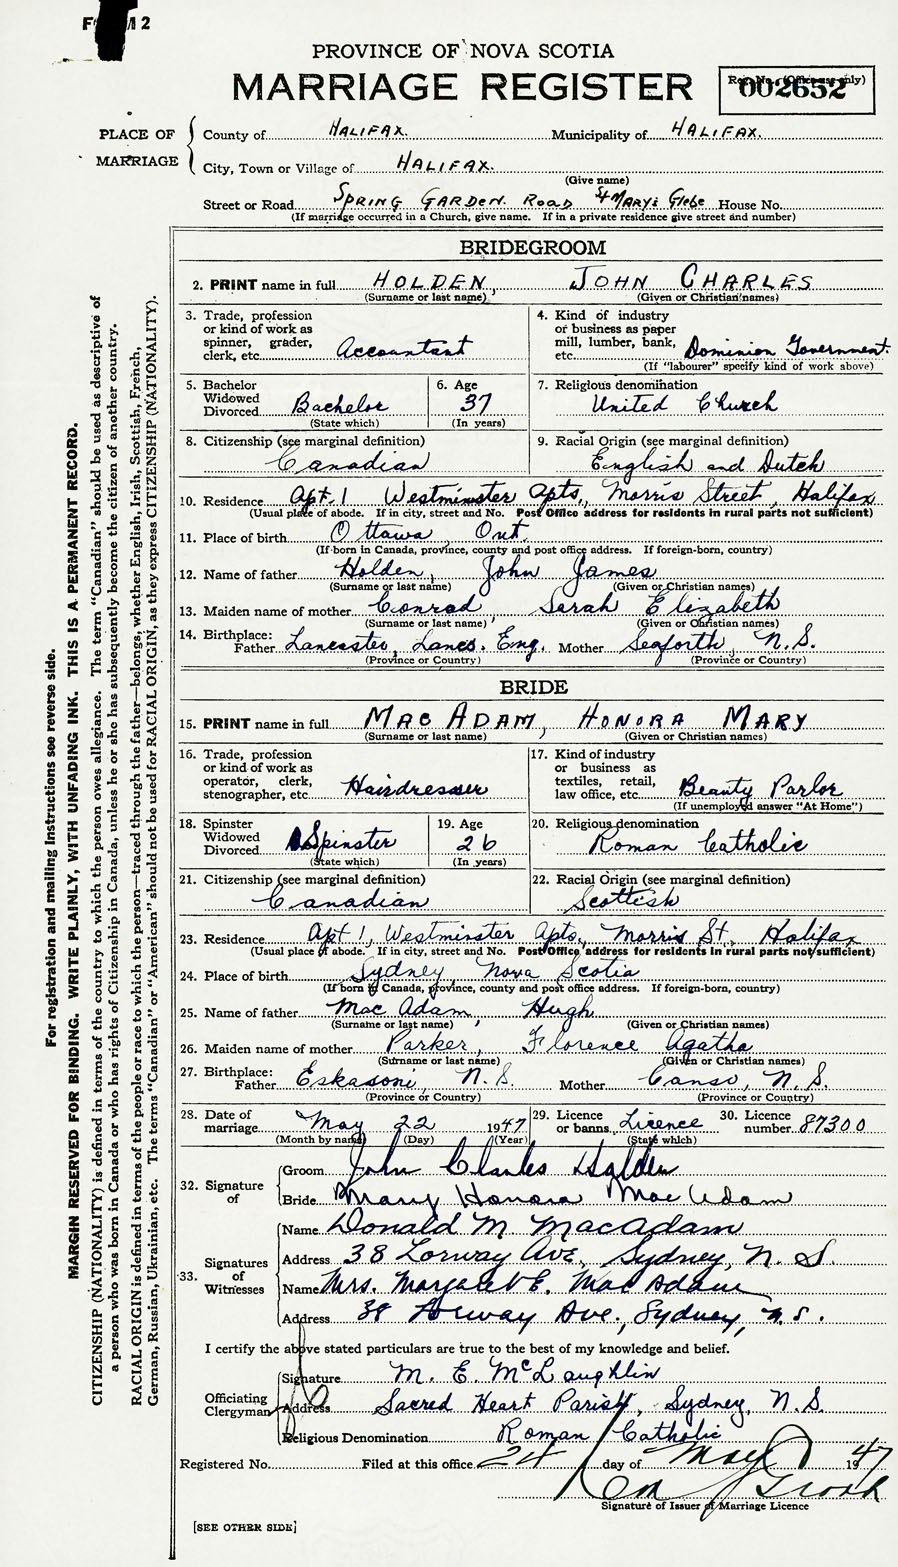 PROVINCE OF NOVA SCOTIA
MARRIAGE REGISTER
Reg. No. (Office use only)
002652
PLACE OF MARRIAGE
County of HALIFAX. Municipality of HALIFAX.
City, Town or Village of HALIFAX.
(Give name)
Street or Road SPRING GARDEN ROAD St MARY's Glebe House No.
(If marriage occurred in a Church, give name. If in a private residence give street and number)
BRIDEGROOM
2. PRINT name in full HOLDEN, JOHN CHARLES
(Surname or last name) (Given or Christian names)
3. Trade, profession
or kind of work as
spinner, grader,
clerk, etc. Accountant
4. Kind of industry
or business as paper
mill, lumber, bank,
etc. Dominion Government.
(If "labourer" specify kind of work above)
5. Bachelor
Widowed
Divorced Bachelor
(State which)
6. Age
37
(In years)
7. Religious denomination
United Church
8. Citizenship (see marginal definition)
Canadian
9. Racial Origin (see marginal definition)
English and Dutch
10. Residence Apt. 1 Westminster Apts., Morris Street, Halifax
(Usual place of abode. If in city, street and No. Post Office address for residents in rural parts not sufficient)
11. Place of birth Ottawa, Ont.
(If born in Canada, province, county and post office address. If foreign-born, country)
12. Name of father Holden, John James
(Surname or last name) (Given or Christian names)
13. Maiden name of mother Conrad, Sarah Elizabeth
(Surname or last name) (Given or Christian names)
14. Birthplace:
Father Lancaster, Lancs. Eng. Mother Seaforth, N.S.
(Province or Country) (Province or Country)
BRIDE
15. PRINT name in full MAC ADAM, HONORA MARY
(Surname or last name) (Given or Christian names)
16. Trade, profession
or kind of work as
operator, clerk,
stenographer, etc. Hairdresser
17. Kind of industry
or business as
textiles, retail,
law office, etc. Beauty Parlor
(If unemployed answer "At Home")
18. Spinster
Widowed
Divorced Spinster
(State which)
19. Age
26
(In years)
20. Religious denomination
Roman Catholic
21. Citizenship (see marginal definition)
Canadian
22. Racial Origin (see marginal definition)
Scottish
23. Residence Apt 1, Westminster Apts., Morris St., Halifax
(Usual place of abode. If in city, street and No. Post Office address for residents in rural parts not sufficient)
24. Place of birth Sydney, Nova Scotia
(If born in Canada, province, county and post office address. If foreign-born, country)
25. Name of father Mac Adam, Hugh
(Surname or last name) (Given or Christian names)
26. Maiden name of mother Parker, Florence Agatha
(Surname or last name) (Given or Christian names)
27. Birthplace:
Father Eskasoni, N.S. Mother Canso, N.S.
(Province or Country) (Province or Country)
28. Date of
marriage May 22 1947
(Month by name) (Day) (Year)
29. Licence
or banns Licence
(State which)
30. Licence
number 87300
32. Signature
of
Groom John Charles Holden
Bride Mary Honora MacAdam
33. Signatures
of
Witnesses
Name Donald M MacAdam
Address 38 Lorway Ave, Sydney, N.S.
Name Mrs. Margaret E. MacAdam
Address 38 Lorway Ave., Sydney, N.S.
I certify the above stated particulars are true to the best of my knowledge and belief.
Officiating
Clergyman
Signature M. E. McLaughlin
Address Sacred Heart Parish, Sydney, N.S.
Religious Denomination Roman Catholic
Registered No. Filed at this office 24 day of May 1947
Signature of Issuer of Marriage Licence
[SEE OTHER SIDE]
For registration and mailing instructions see reverse side.
MARGIN RESERVED FOR BINDING. WRITE PLAINLY, WITH UNFADING INK. THIS IS A PERMANENT RECORD.
CITIZENSHIP (NATIONALITY) is defined in terms of the country to which the person owes allegiance. The term "Canadian" should be used as descriptive of
a person who was born in Canada or who has rights of Citizenship in Canada, unless he or she has subsequently become the citizen of another country.
RACIAL ORIGIN is defined in terms of the people or race to which the person—traced through the father—belongs, whether English, Irish, Scottish, French,
German, Russian, Ukrainian, etc. The terms "Canadian" or "American" should not be used for RACIAL ORIGIN, as they express CITIZENSHIP (NATIONALITY).